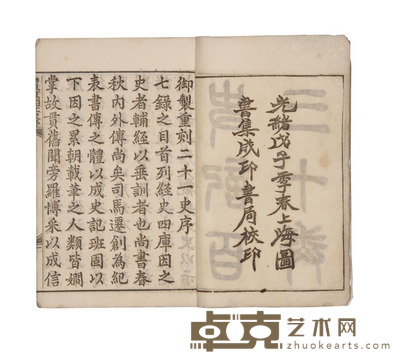 光緒戊子季春上海圖
書集成印書局校印
御製重刻二十一史序
七錄之目首列經史四庫因之
史者輔經以垂訓者也尚書春
秋內外傳尚矣司馬遷創為紀
表書傳之體以成史記班固以
下因之累朝載筆之人類皆嫻
掌故貫舊聞旁羅博采以成信
卓克艺术网
www.zhuokearts.com